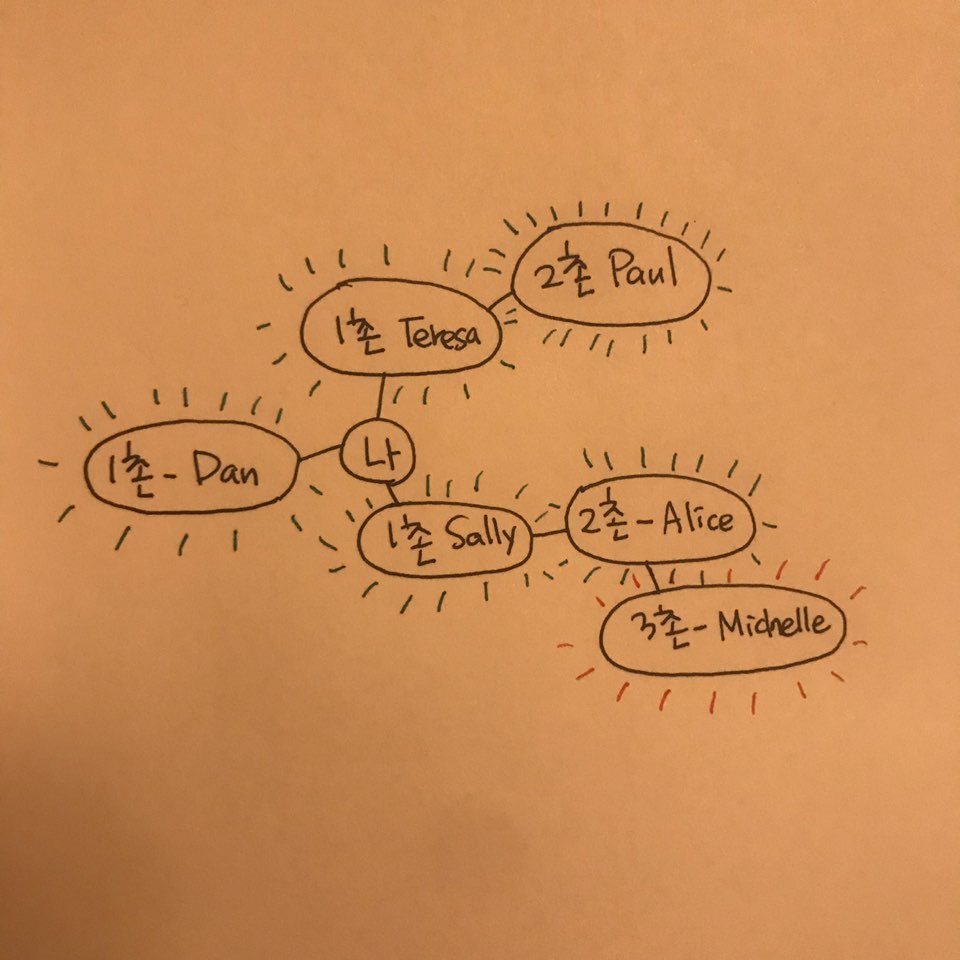 2촌 Paul
1촌 Teresa
1촌 - Dan
나
1촌 Sally
2촌 - Alice
3촌 - Michelle